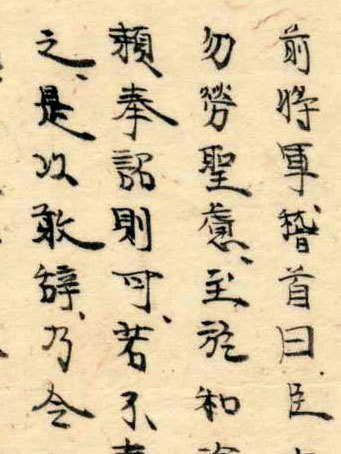 前將軍稽首曰臣
勿勞聖慮至於和
賴奉詔則可若不
之是以敢辭乃令